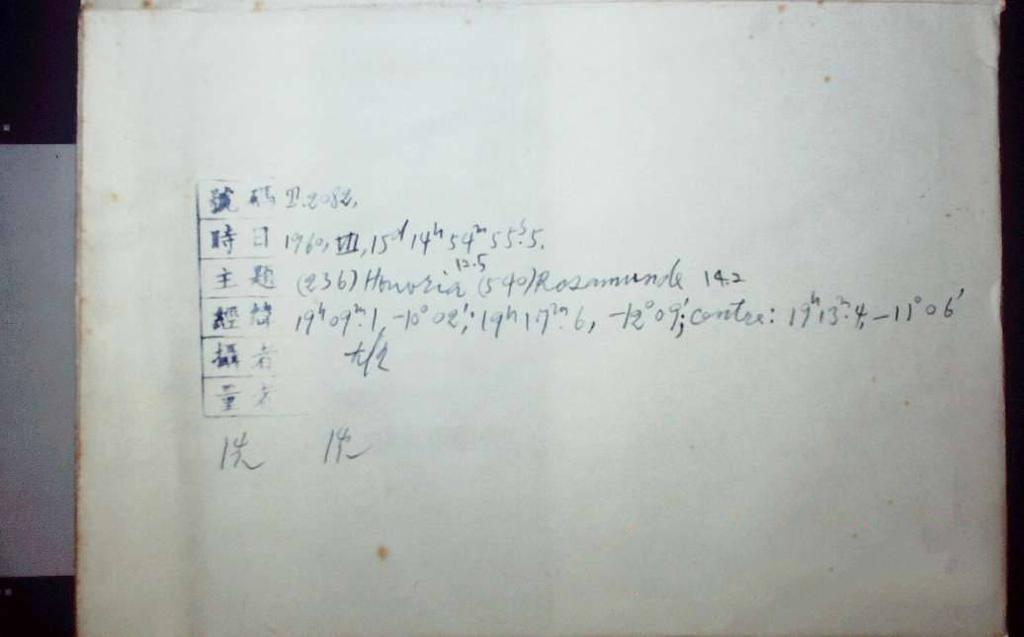 號碼 P.2082.
時日 1960, VIII, 15d 14h 54m 55s.5.
主題 (236) Honoria 12.5 (540) Rosamunde 14.2
經緯 19h 09m.1, -10° 02'; 19h 17m.6, -12° 09'; centre: 19h 13m.4, -11° 06'
攝者
量者